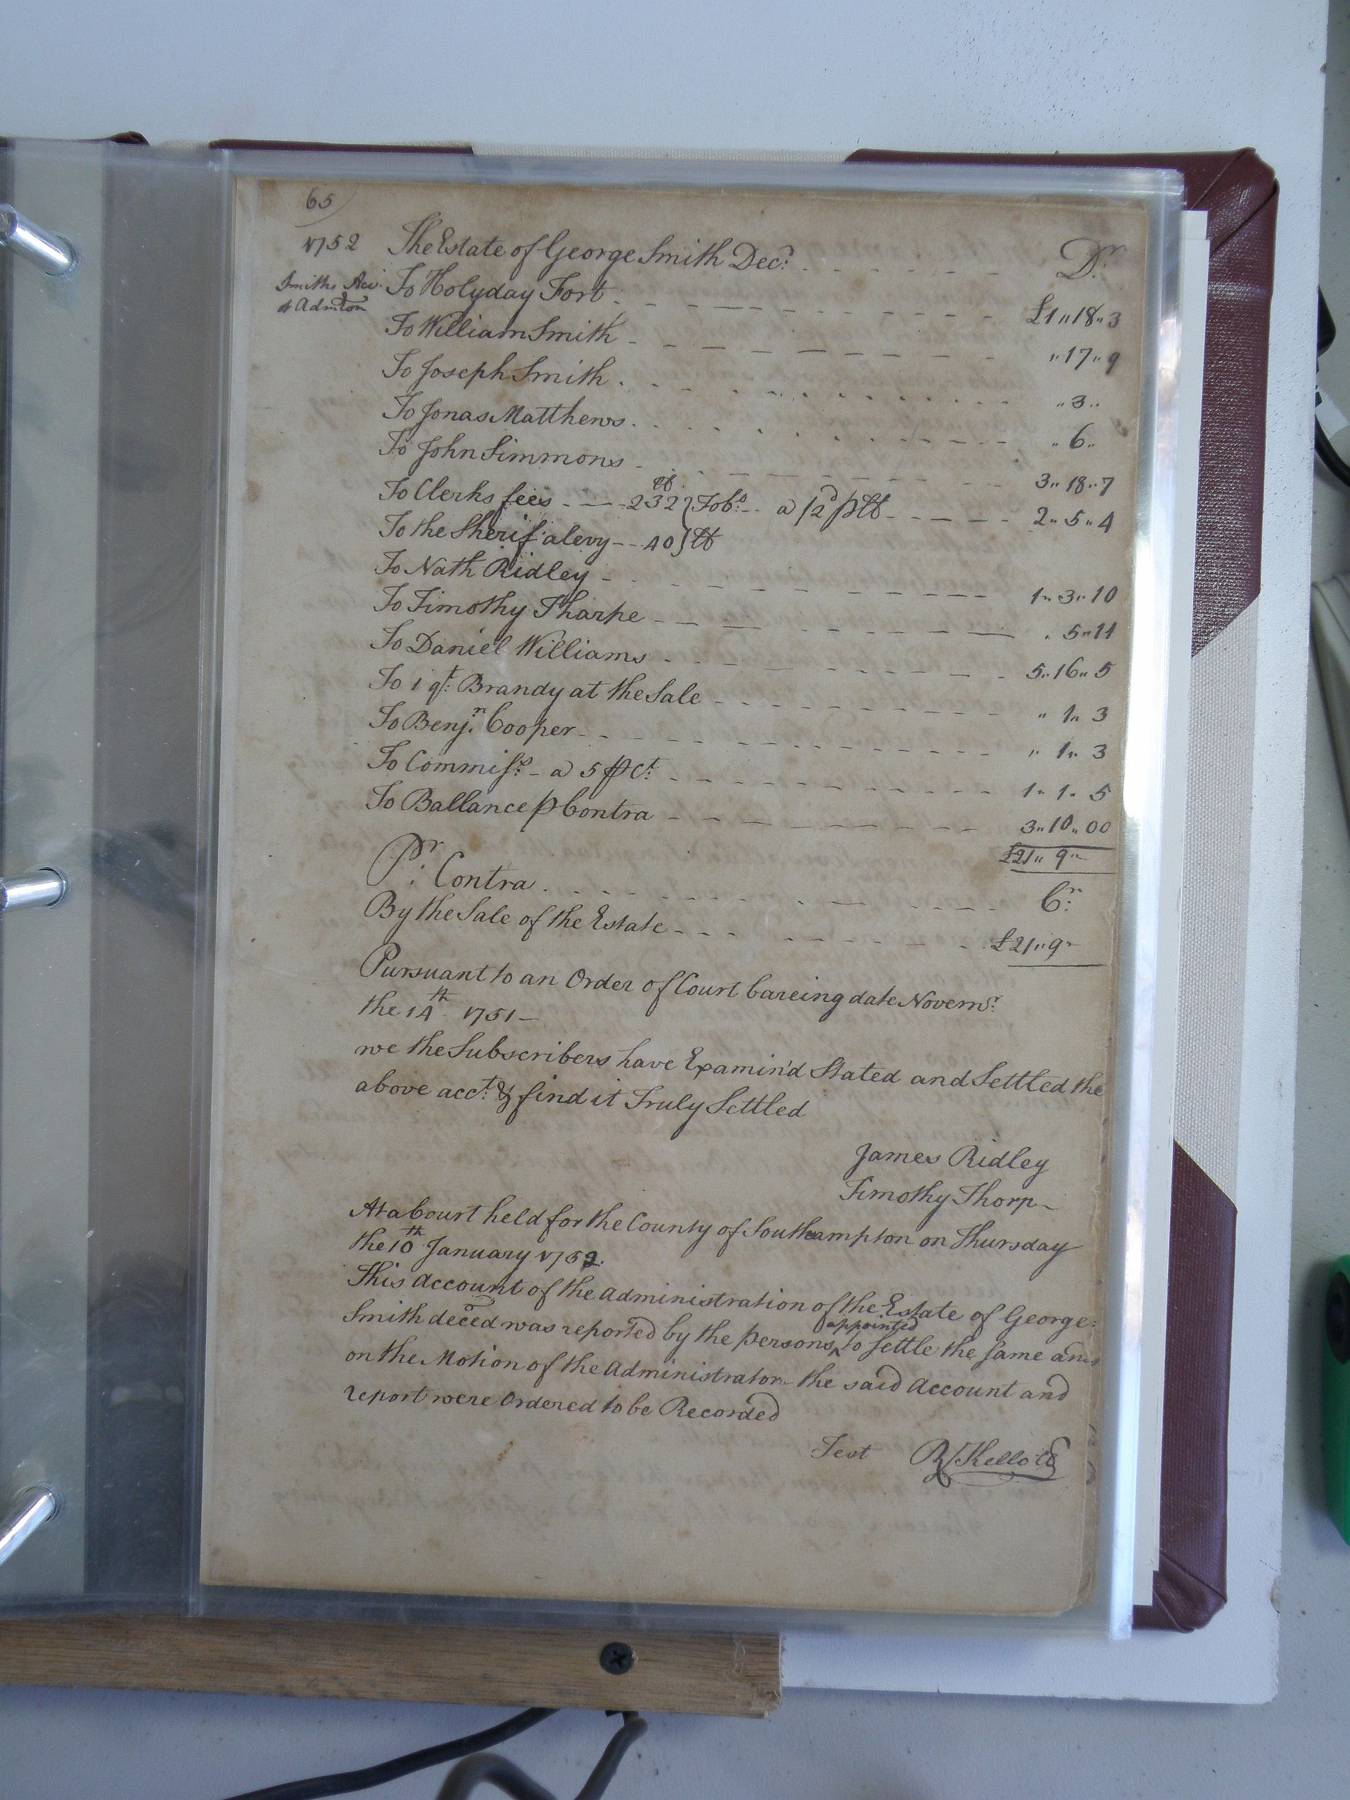 65
1752 The Estate of George Smith Dec.d Dr.
Smiths
of Admton
To Holyday Fort £1"18"3
To William Smith "17"9
To Joseph Smith "3"
To Jonas Matthews "6"
To John Simmons 3"18"7
To Clerks fees 232 lb } Tobo. a /2d p lb 2"5"4
To the Sherif a levy 40 } lb
To Nath Ridley 1"3"10
To Timothy Tharpe "5"11
To Daniel Williams 5"16"5
To 1 qt. Brandy at the Sale "1"3
To Benjn. Cooper "1"3
To Commiss. a 5 p Ct. 1"1"5
To Ballance p Contra 3"10"00
£21"9"
Pr. Contra Cr.
By the Sale of the Estate £21"9"
Pursuant to an Order of Court bareing date Novemr.
the 14th 1751
we the Subscribers have Examin'd Stated and Settled the
above acct. & find it Truly Settled
James Ridley
Timothy Thorp
At a Court held for the County of Southampton on Thursday
the 10th January 1752.
This Account of the Administration of the Estate of George
Smith deced was reported by the persons appointed to settle the same and
on the Motion of the Administrator the said Account and
report were Ordered to be Recorded
Test R Kello Cl